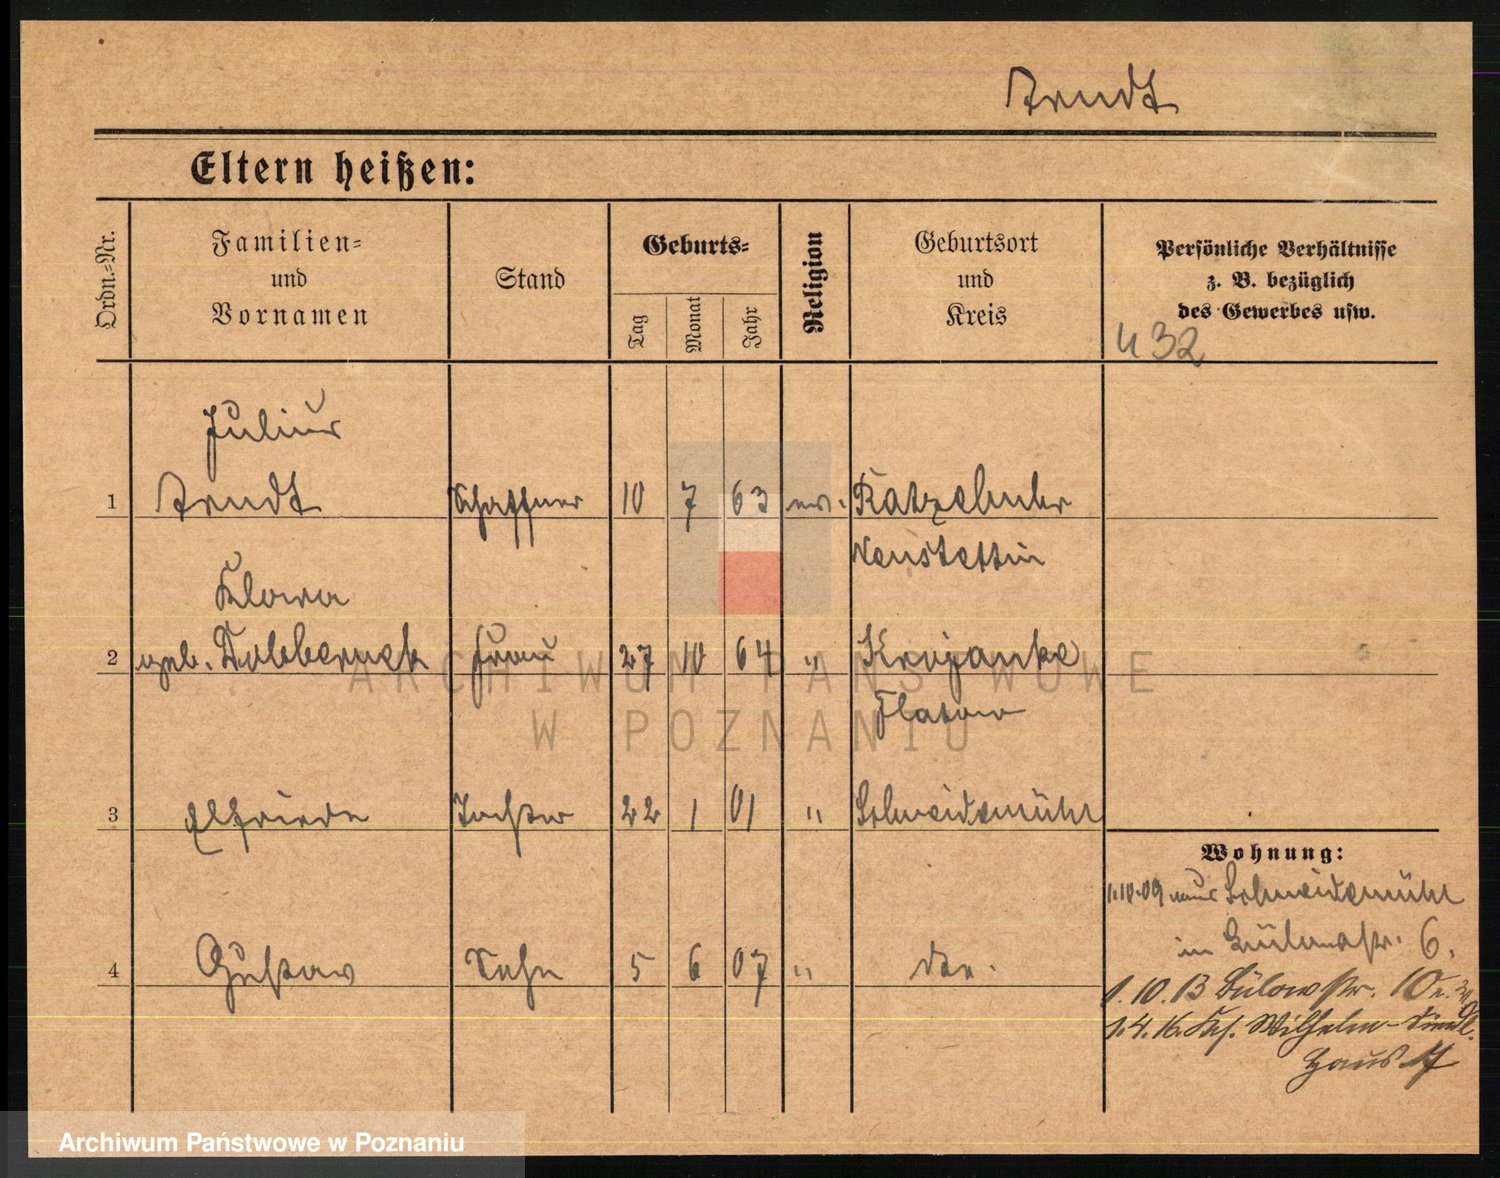 Arndt
Eltern heißen:
Ordn.-Nr.
Familien-
und
Vornamen
Stand
Geburts-
Tag
Monat
Jahr
Religion
Geburtsort
und
Kreis
Persönliche Verhältnisse
z. B. bezüglich
des Gewerbes usw.
432
Julius
1 Arndt Schaffner 10 7 63 ev. Ratzebuhr
Neustettin
Klara
2 geb. Dobberneck Frau 27 10 64 " Krojanke
Flatow
3 Elfriede Tochter 22 1 01 " Schneidemühl
Wohnung:
1.10.09 Schneidemühl
in Bülowstr. 6.
4 Gustav Sohn 5 6 07 "
1.10.13 Bülowstr. 10
1.4.16. Wilhelm-
Haus 17
ARCHIWUM PAŃSTWOWE
W POZNANIU
Archiwum Państwowe w Poznaniu